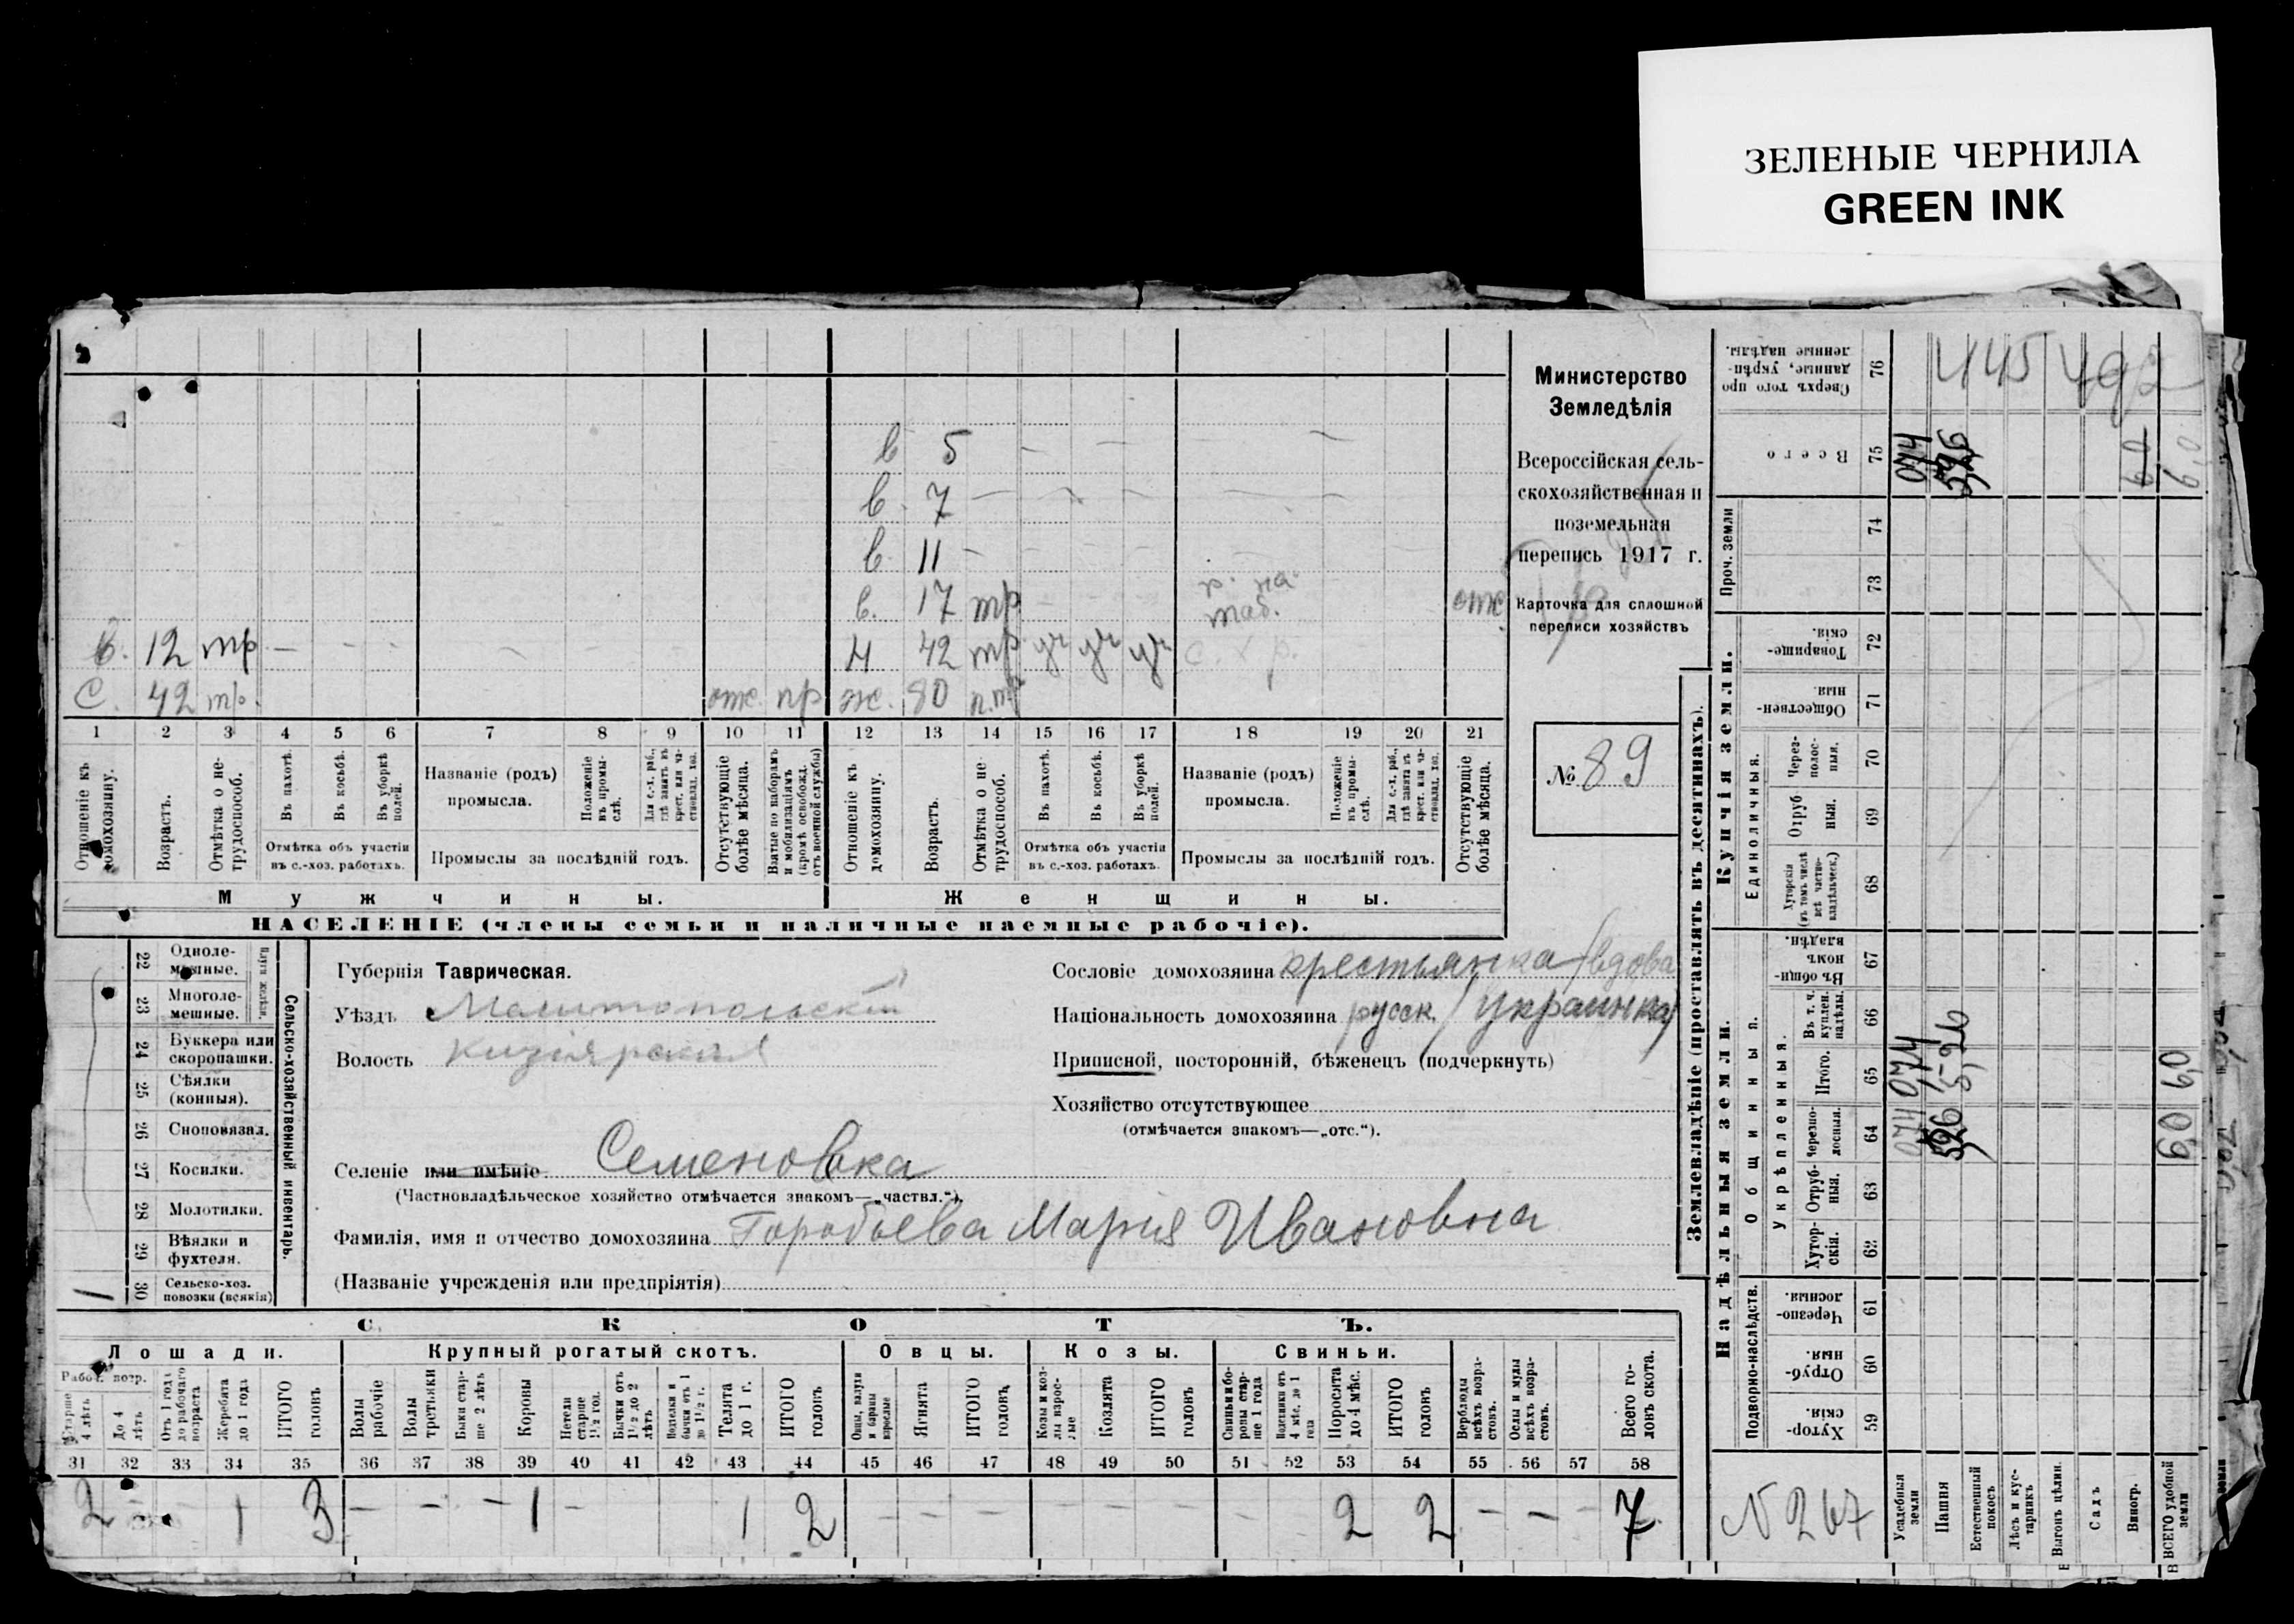 ЗЕЛЕНЫЕ ЧЕРНИЛА
GREEN INK
в 5 — — —
в. 7 — — — — —
в. 11 — — — —
в. 17 тр — — — р. на таб. отс
в. 12 тр — — — — —
н 42 тр уч уч уч с. х р.
с. 42 тр. отс. пр
ж. 80 п.т.
1 2 3 4 5 6 7 8 9 10 11 12 13 14 15 16 17 18 19 20 21
Отношеніе къ домохозяину.
Возрастъ.
Отмѣтка о нетрудоспособ.
Въ пахотѣ.
Въ косьбѣ.
Въ уборкѣ полей.
Отмѣтка объ участіи въ с.-хоз. работахъ.
Названіе (родъ) промысла.
Положеніе въ промыслѣ.
Для с.-х. раб., гдѣ занятъ въ крест. или частновлад. хоз.
Промыслы за послѣдній годъ.
Отсутствующіе болѣе мѣсяца.
Взятые по наборамъ и мобилизаціямъ (кромѣ освобожд. отъ военной службы)
Отношеніе къ домохозяину.
Возрастъ.
Отмѣтка о нетрудоспособ.
Въ пахотѣ.
Въ косьбѣ.
Въ уборкѣ полей.
Отмѣтка объ участіи въ с.-хоз. работахъ.
Названіе (родъ) промысла.
Положеніе въ промыслѣ.
Для с.-х. раб., гдѣ занята въ крест. или частновлад. хоз.
Промыслы за послѣдній годъ.
Отсутствующіе болѣе мѣсяца.
Мужчины.
Женщины.
НАСЕЛЕНІЕ (члены семьи и наличные наемные рабочіе).
Министерство
Земледѣлія
Всероссійская сель-
скохозяйственная и
поземельная
перепись 1917 г.
Карточка для сплошной
переписи хозяйствъ
№ 89
Сельско-хозяйственный инвентарь.
Плуги желѣзн.
22 Одноле-
мешные.
23 Многоле-
мешные.
24 Буккера или
скоропашки.
25 Сѣялки
(конныя).
26 Сноповязал.
27 Косилки.
28 Молотилки.
29 Вѣялки и
фухтеля.
30 Сельско-хоз.
повозки (всякія)
1
Губернія Таврическая.
Уѣздъ Мелитопольскій
Волость Кизіярская
Селеніе или имѣніе Семеновка
(Частновладѣльческое хозяйство отмѣчается знакомъ—„частвл.“).
Фамилія, имя и отчество домохозяина Горобьева Мария Ивановна
(Названіе учрежденія или предпріятія)
Сословіе домохозяина крестьянка /вдова
Національность домохозяина русск. /украинка/
Приписной, посторонній, бѣженецъ (подчеркнуть)
Хозяйство отсутствующее
(отмѣчается знакомъ—„отс.“).
СКОТЪ.
Лошади.
Крупный рогатый скотъ.
Овцы.
Козы.
Свиньи.
Рабоч. возр.
Старше 4 лѣтъ
До 4 лѣтъ
Отъ 1 года до рабочаго возраста
Жеребята до 1 года
ИТОГО головъ
Волы рабочіе
Волы третьяки
Быки старше 2 лѣтъ
Коровы
Нетели старше 1½ год.
Бычки отъ 1½ до 2 лѣтъ
Нетелки и бычки отъ 1 до 1½ г.
Телята до 1 г.
ИТОГО головъ
Овцы, валухи и бараны взрослые
Ягнята
ИТОГО головъ
Козы и козлы взрослые
Козлята
ИТОГО головъ
Свиньи и боровы старше 1 года
Подсвинки отъ 4 мѣс. до 1 года
Поросята до 4 мѣс.
ИТОГО головъ
Верблюды всѣхъ возрастовъ.
Ослы и мулы всѣхъ возрастовъ.
Всего головъ скота.
31 32 33 34 35 36 37 38 39 40 41 42 43 44 45 46 47 48 49 50 51 52 53 54 55 56 57 58
2 — 1 3 — — — 1 — 1 2 — — — — — — — — 2 2 — — — 7
Землевладѣніе (проставлять въ десятинахъ).
Сверхъ того проданные, укрѣпленные надѣлы. 76
Всего 75
Проч. земли
74
73
Купчія земли.
Товарищескія. 72
Общественныя. 71
Единоличныя.
Черезполосныя. 70
Отрубныя. 69
Хуторскія (въ томъ числѣ всѣ частновладѣльческ.) 68
Надѣльныя земли.
Общинныя.
Въ общинномъ владѣн. 67
Укрѣпленныя.
Въ т. ч. куплен. надѣлы. 66
Итого. 65
Черезполосныя. 64
Отрубныя. 63
Хуторскія. 62
Подворно-наслѣдств.
Черезполосныя. 61
Отрубныя. 60
Хуторскія. 59
445 492
074
596
09
09
074 074
596 5,26
09 09
N 267
Усадебныя земли
Пашня
Естественный покосъ
Лѣсъ и кустарникъ
Выгонъ цѣлин.
Садъ
Виногр.
ВСЕГО удобной земли